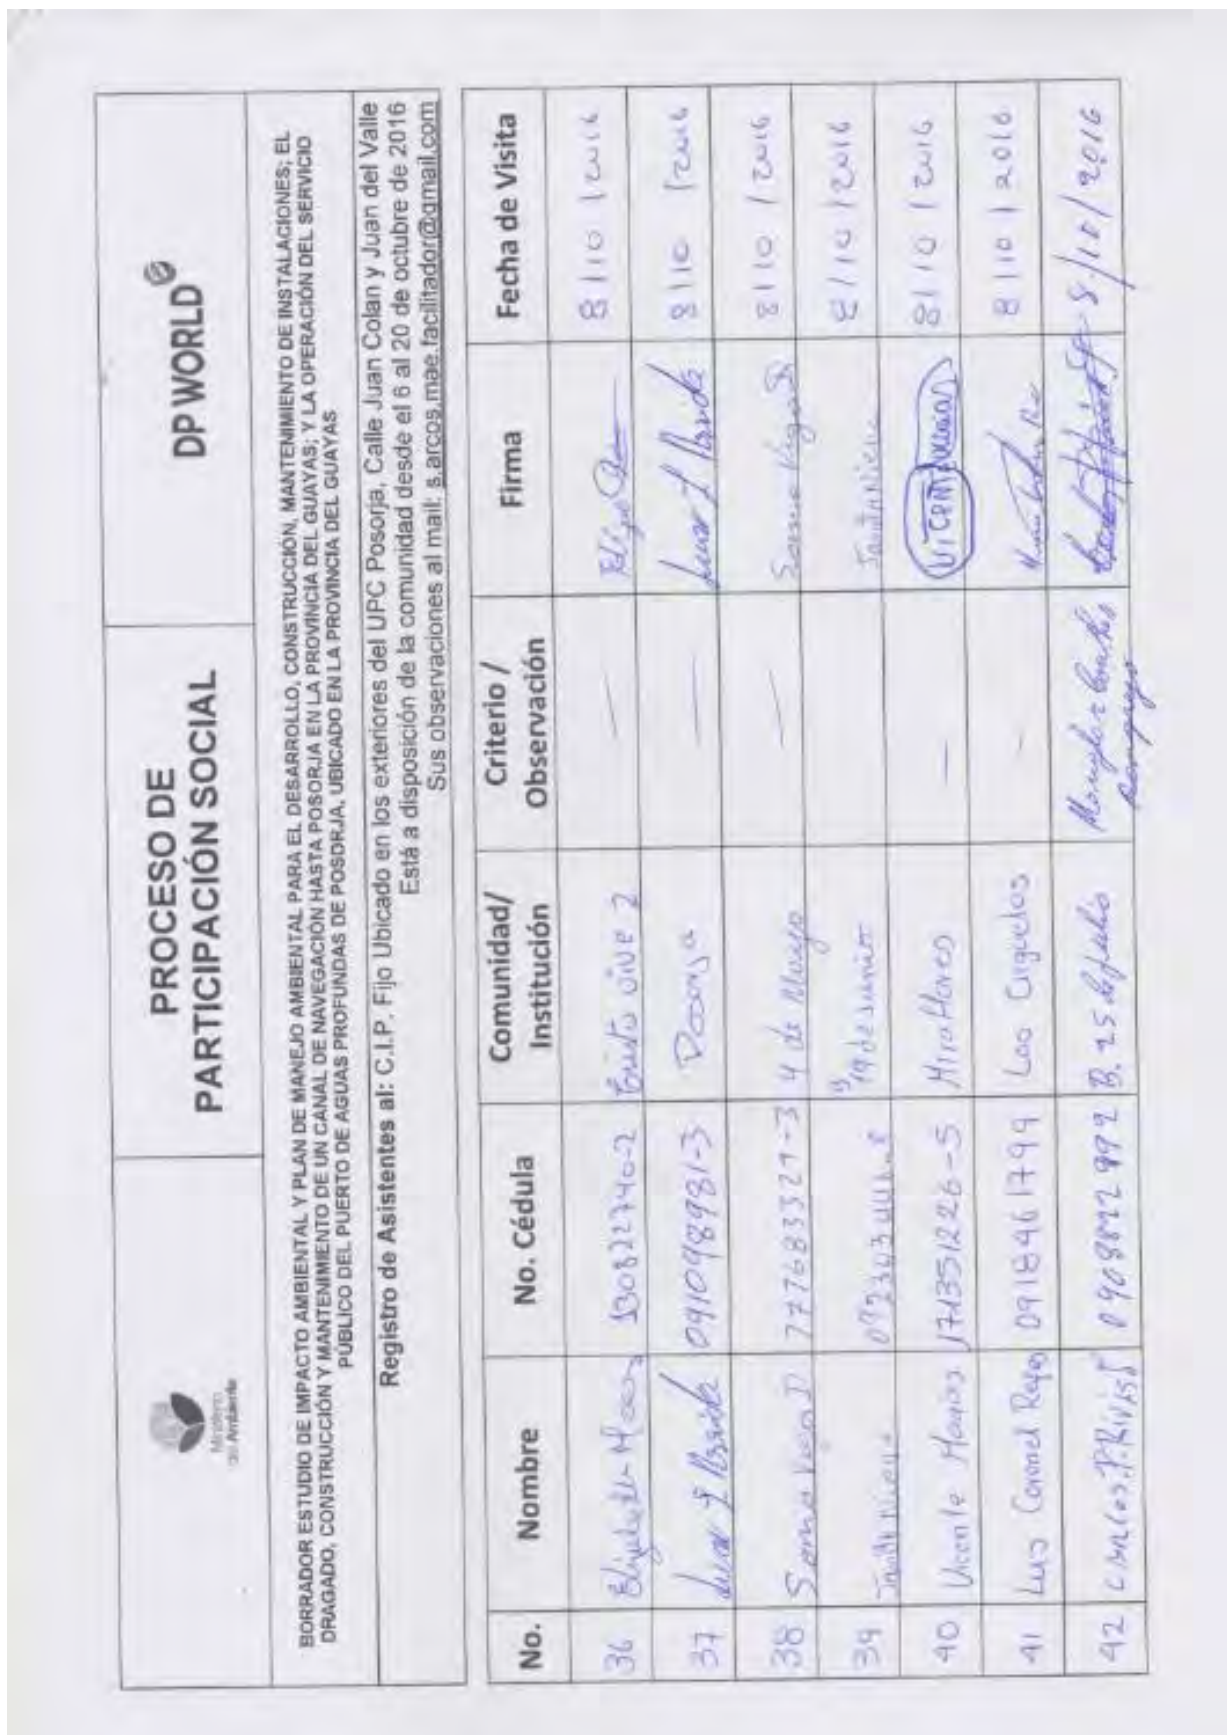 Ministerio
del Ambiente
PROCESO DE
PARTICIPACIÓN SOCIAL
DP WORLD
BORRADOR ESTUDIO DE IMPACTO AMBIENTAL Y PLAN DE MANEJO AMBIENTAL PARA EL DESARROLLO, CONSTRUCCIÓN, MANTENIMIENTO DE INSTALACIONES; EL
DRAGADO, CONSTRUCCIÓN Y MANTENIMIENTO DE UN CANAL DE NAVEGACIÓN HASTA POSORJA EN LA PROVINCIA DEL GUAYAS; Y LA OPERACIÓN DEL SERVICIO
PÚBLICO DEL PUERTO DE AGUAS PROFUNDAS DE POSORJA, UBICADO EN LA PROVINCIA DEL GUAYAS
Registro de Asistentes al: C.I.P. Fijo Ubicado en los exteriores del UPC Posorja, Calle Juan Colan y Juan del Valle
Está a disposición de la comunidad desde el 6 al 20 de octubre de 2016
Sus observaciones al mail: s.arcos.mae.facilitador@gmail.com
No. Nombre No. Cédula Comunidad/ Institución Criterio / Observación Firma Fecha de Visita
36 130822740-2 vive 2 — 8/10/2016
37 091098981-3 Posorja — 8/10/2016
38 Vega D 777683329-3 4 de Mayo — 8/10/2016
39 8/10/2016
40 Vicente 171351226-5 Miraflores — 8/10/2016
41 Luis Coronel Reyes 0918461799 Los — 8/10/2016
42 Carlos 0908822992 B. 25 de Julio 8/10/2016